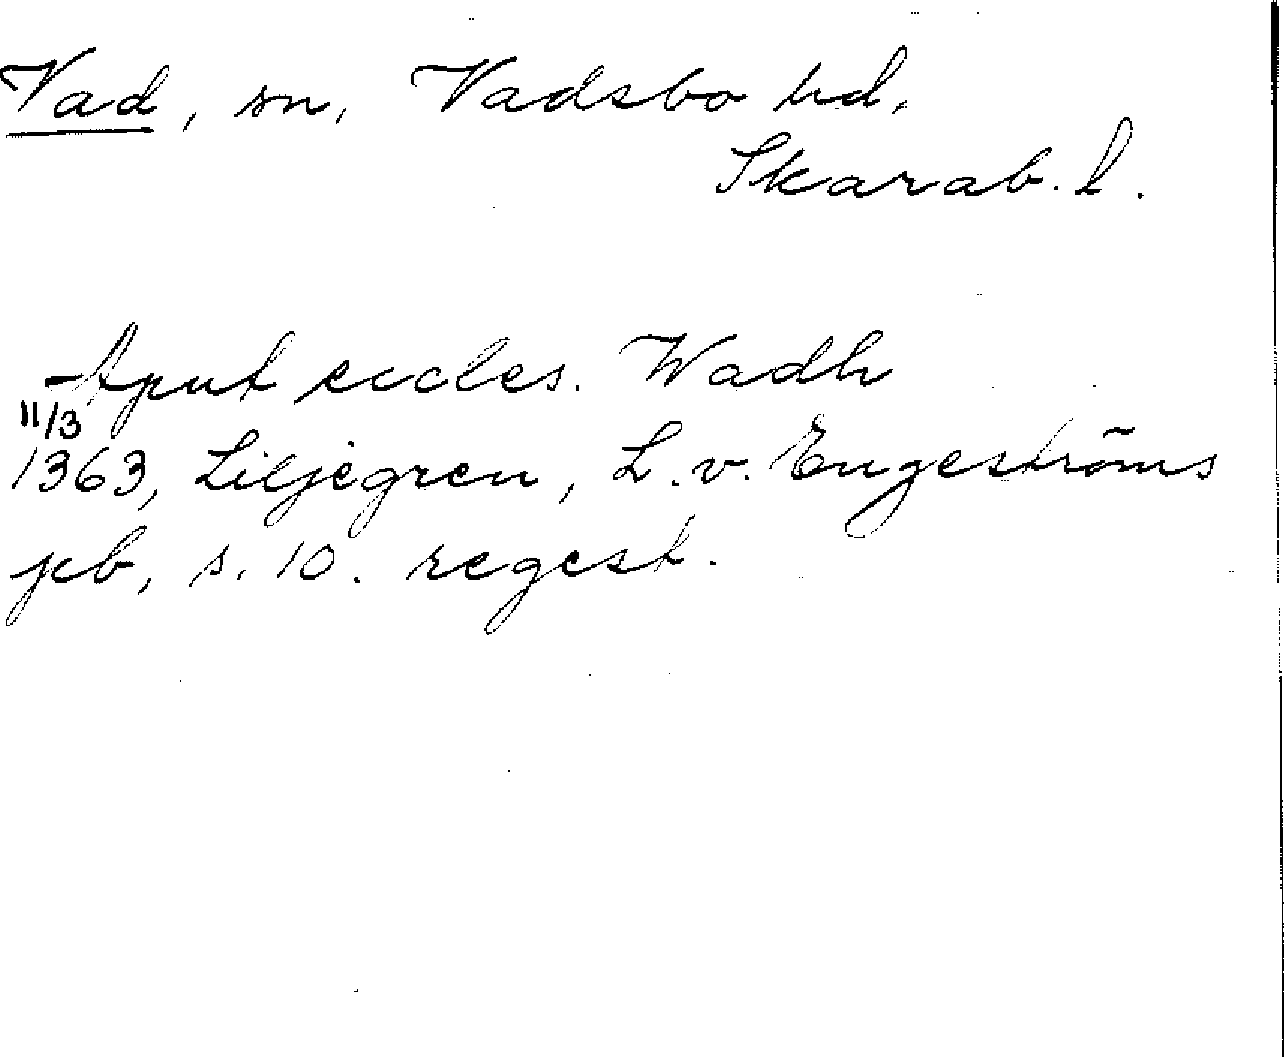 Vad, sn, Vadsbo hd,
Skarab. l.
Aput eccles. Wadh
11/3
1363, Liljegren, L. v. Engeströms
jcb, s. 10. regest.